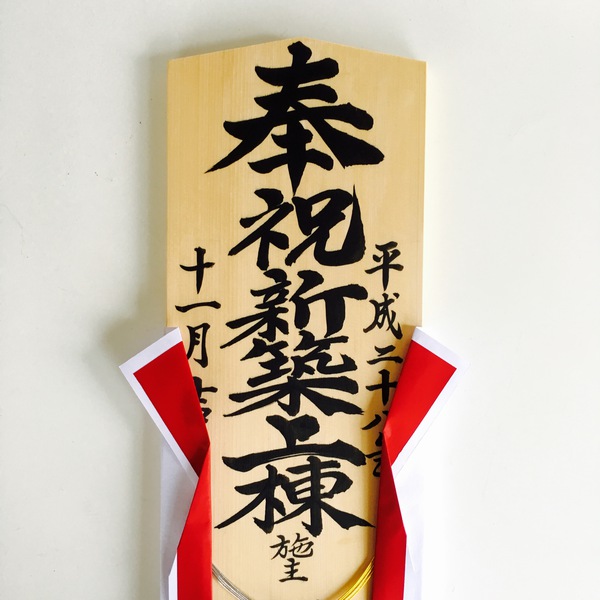 奉祝新築上棟
施主
平成二十八年
十一月吉